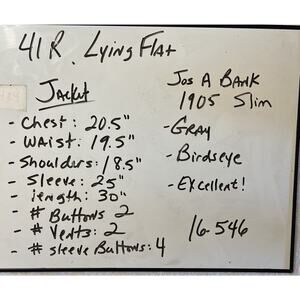 41R. Lying Flat
Jacket
- Chest: 20.5"
- Waist: 19.5"
- Shoulders: 18.5"
- Sleeve: 25"
- length: 30"
- # Buttons 2
- # Vents: 2
- # sleeve Buttons: 4
Jos A Bank
1905 Slim
- Gray
- Birdseye
- Excellent!
16-546